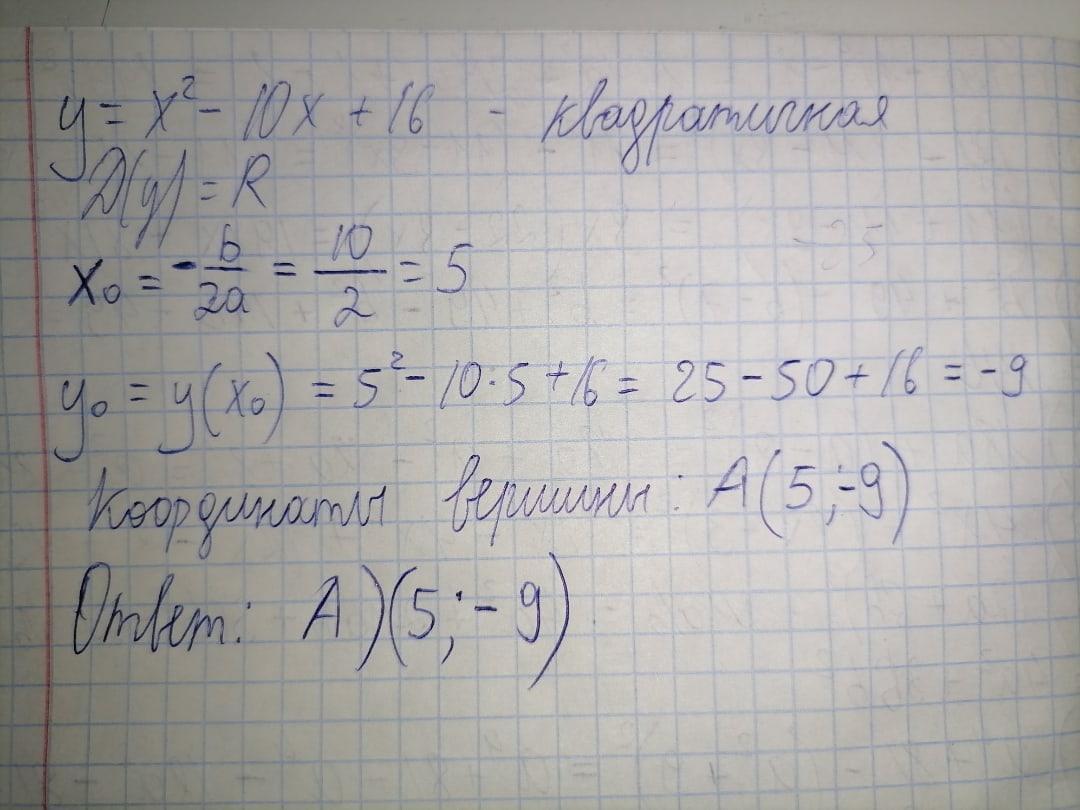 y = x² - 10x + 16 - квадратичная
D(y) = R
x₀ = -b/2a = 10/2 = 5
y₀ = y(x₀) = 5² - 10·5 + 16 = 25 - 50 + 16 = -9
Координаты вершины: A(5;-9)
Ответ: A)(5;-9)